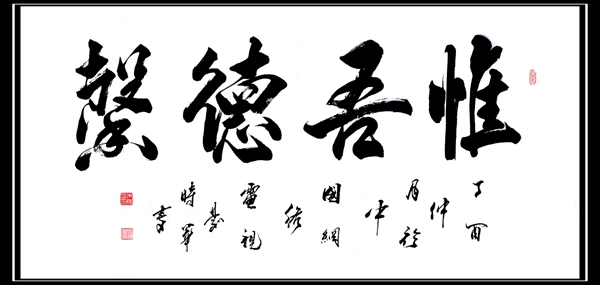 惟吾德馨
丁酉仲月於中國網絡電視臺時書